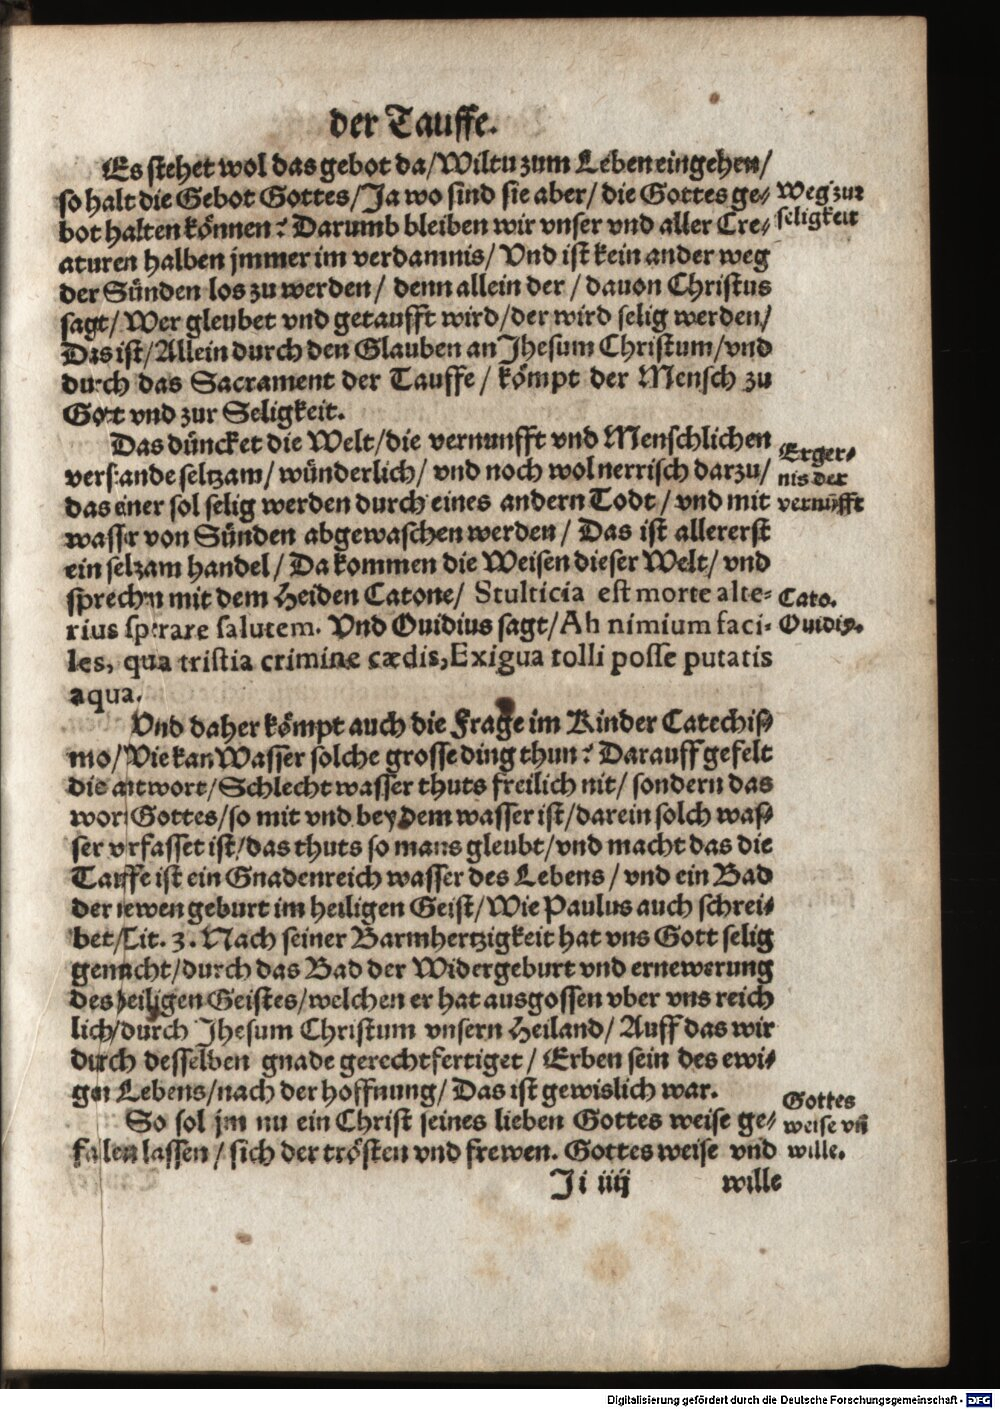 der Tauffe.
Es stehet wol das gebot da/ Wiltu zum Leben eingehen/
so halt die Gebot Gottes/ Ja wo sind sie aber/ die Gottes ge-
bot halten können? Darumb bleiben wir vnser vnd aller Cre-
aturen halben jmmer im verdamnis/ Vnd ist kein ander weg
der Sünden los zu werden/ denn allein der/ dauon Christus
sagt/ Wer gleubet vnd getaufft wird/ der wird selig werden/
Das ist/ Allein durch den Glauben an Jhesum Christum/ vnd
durch das Sacrament der Tauffe/ kömpt der Mensch zu
Gott vnd zur Seligkeit.
Weg zur
seligkeit
Das düncket die Welt/ die vernunfft vnd Menschlichen
verstande seltzam/ wünderlich/ vnd noch wol nerrisch darzu/
das einer sol selig werden durch eines andern Todt/ vnd mit
wasser von Sünden abgewaschen werden/ Das ist allererst
ein selzam handel/ Da kommen die Weisen dieser Welt/ vnd
sprechen mit dem Heiden Catone/ Stulticia est morte alte-
rius sperare salutem. Vnd Ouidius sagt/ Ah nimium faci-
les, qua tristia crimine cædis, Exigua tolli posse putatis
aqua.
Erger-
nis der
vernũfft
Cato.
Ouidiꝯ.
Vnd daher kömpt auch die Frage im Kinder Catechis-
mo/ Wie kan Wasser solche grosse ding thun? Darauff gefelt
die antwort/ Schlecht wasser thuts freilich nit/ sondern das
wort Gottes/ so mit vnd bey dem wasser ist/ darein solch was-
ser verfasset ist/ das thuts so mans gleubt/ vnd macht das die
Tauffe ist ein Gnadenreich wasser des Lebens/ vnd ein Bad
der newen geburt im heiligen Geist/ Wie Paulus auch schrei-
bet/ Tit. 3. Nach seiner Barmhertzigkeit hat vns Gott selig
gemacht/ durch das Bad der Widergeburt vnd ernewerung
des heiligen Geistes/ welchen er hat ausgossen vber vns reich
lich/ durch Jhesum Christum vnsern Heiland/ Auff das wir
durch desselben gnade gerechtfertiget/ Erben sein des ewi-
gen Lebens/ nach der hoffnung/ Das ist gewislich war.
So sol jm nu ein Christ seines lieben Gottes weise ge-
fallen lassen/ sich der trösten vnd frewen. Gottes weise vnd
Gottes
weise vñ
wille.
Ji iiij
wille
Digitalisierung gefördert durch die Deutsche Forschungsgemeinschaft - DFG